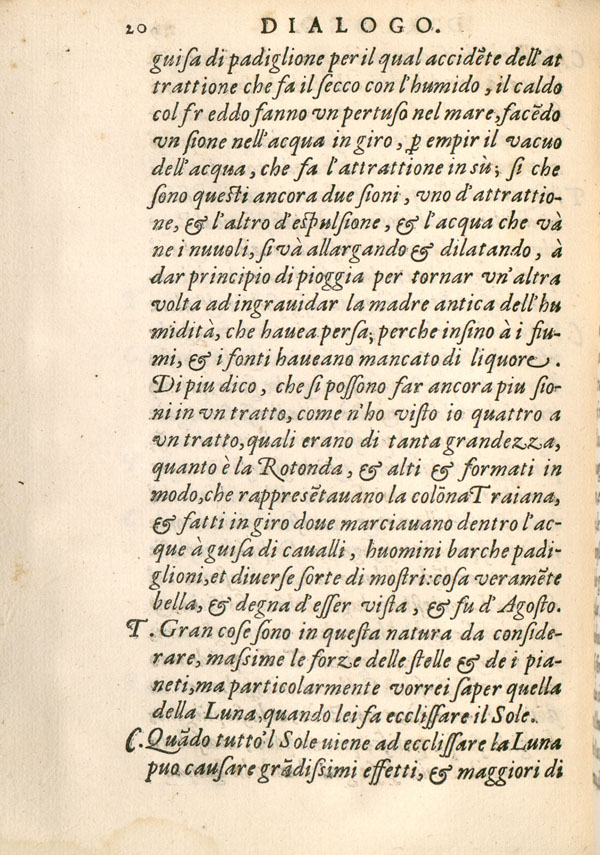 20 DIALOGO.
guiſa di padiglione per il qual accidẽte dell'at
trattione che fa il ſecco con l'humido, il caldo
col fr eddo fanno vn pertuſo nel mare, facẽdo
vn ſione nell'acqua in giro, ꝑ empir il vacuo
dell'acqua, che fa l'attrattione in sù; ſi che
ſono queſti ancora due ſioni, vno d'attrattio-
ne, & l'altro d'eſpulſione, & l'acqua che và
ne i nuuoli, ſi và allargando & dilatando, à
dar principio di pioggia per tornar vn'altra
volta ad ingrauidar la madre antica dell'hu
midità, che hauea perſa; perche inſino à i fiu-
mi, & i fonti haueano mancato di liquore.
Di piu dico, che ſi poſſono far ancora piu ſio-
ni in vn tratto, come n'ho viſto io quattro a
vn tratto, quali erano di tanta grandezza,
quanto è la Rotonda, & alti & formati in
modo, che rappreſẽtauano la colõna Traiana,
& fatti in giro doue marciauano dentro l'ac-
que à guiſa di caualli, huomini barche padi-
glioni, et diuerſe ſorte di moſtri: coſa veramẽte
bella, & degna d'eſſer viſta, & fu d'Agoſto.
T. Gran coſe ſono in queſta natura da conſide-
rare, maſſime le forze delle ſtelle & de i pia-
neti, ma particolarmente vorrei ſaper quella
della Luna, quando lei fa eccliſſare il Sole.
C. Quãdo tutto'l Sole uiene ad eccliſſare la Luna
puo cauſare grãdiſſimi effetti, & maggiori di